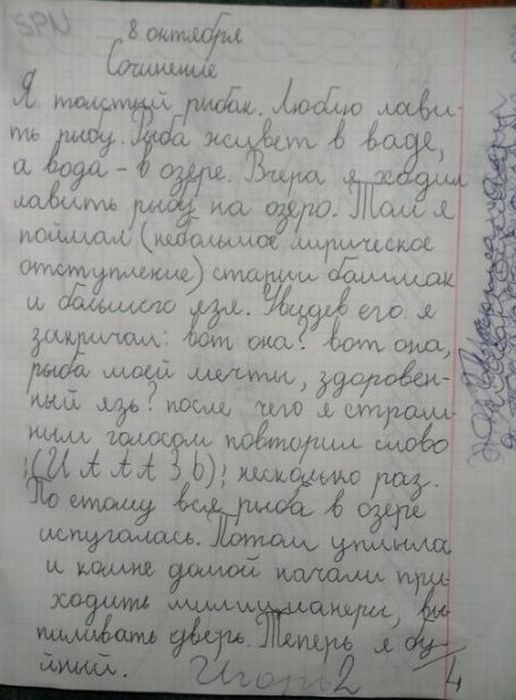 SPN
8 октября
Сочинение
Я толстый рыбак. Люблю лави-
ть рыбу. Рыба живет в ваде,
а вода - в озере. Вчера я ходил
лавить рыбу на озеро. Там я
поймал (небольшое лирическое
отступление) старии башмак
и большого язя. Увидев его я
закричал: вот она? вот она,
рыба моей мечты, здоровен-
ный язь? после чего я страш-
ным голосом повторил слово
;(И А А А З Ь); несколько раз.
По етому вся рыба в озере
испугалась. Потом уплыла
и комне домой начали при-
ходить милицианеры, вы-
пиливать дверь. Теперь я бу-
йный. Игорь 2/4